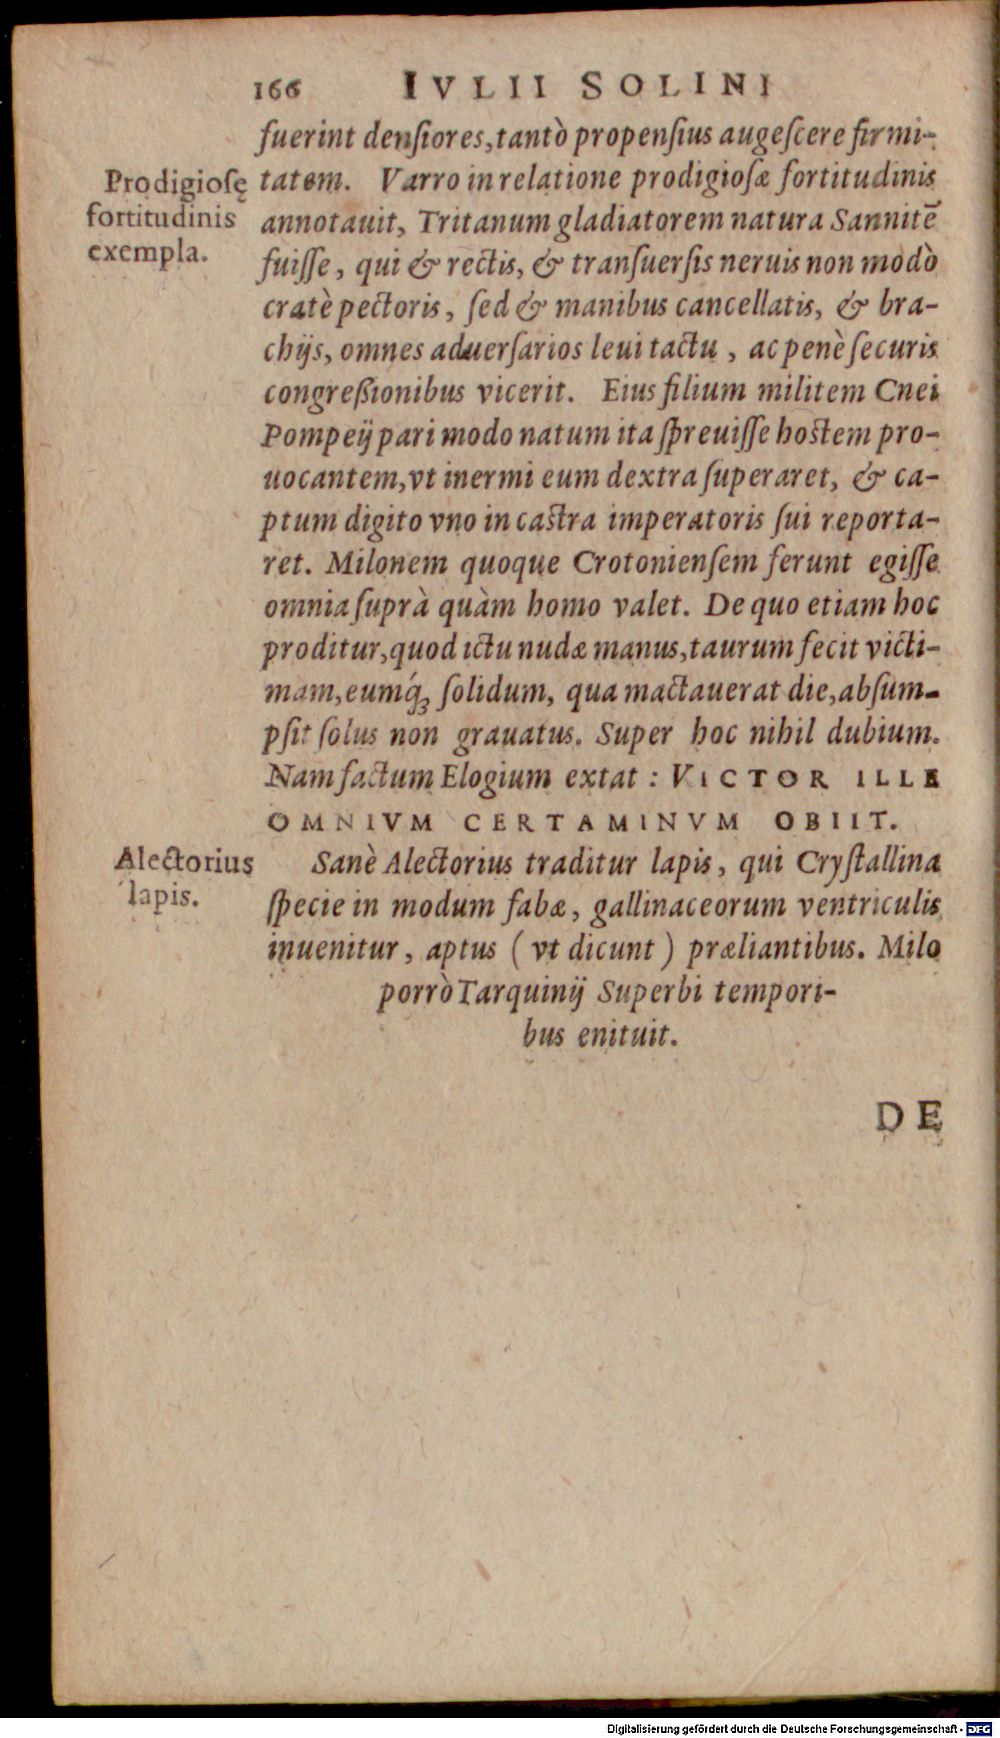 166 IVLII SOLINI
fuerint denſiores, tantò propenſius augeſcere firmi-
tatem. Varro in relatione prodigioſæ fortitudinis
annotauit, Tritanum gladiatorem natura Sannitē
fuiſſe, qui & rectis, & tranſuerſis neruis non modò
cratè pectoris, ſed & manibus cancellatis, & bra-
chijs, omnes aduerſarios leui tactu, ac penè ſecuris
congreßionibus vicerit. Eius filium militem Cnei
Pompeij pari modo natum ita ſpreuiſſe hoſtem pro-
uocantem, vt inermi eum dextra ſuperaret, & ca-
ptum digito vno in caſtra imperatoris ſui reporta-
ret. Milonem quoque Crotonienſem ferunt egiſſe
omnia ſuprà quàm homo valet. De quo etiam hoc
proditur, quod ictu nudæ manus, taurum fecit victi-
mam, eumq́ꝫ ſolidum, qua mactauerat die, abſum-
pſit ſolus non grauatus. Super hoc nihil dubium.
Nam factum Elogium extat : VICTOR ILLE
OMNIVM CERTAMINVM OBIIT.
Sanè Alectorius traditur lapis, qui Cryſtallina
ſpecie in modum fabæ, gallinaceorum ventriculis
inuenitur, aptus ( vt dicunt ) præliantibus. Milo
porrò Tarquinij Superbi tempori-
bus enituit.
DE
Prodigioſę
fortitudinis
exempla.
Alectorius
lapis.
Digitalisierung gefördert durch die Deutsche Forschungsgemeinschaft - DFG